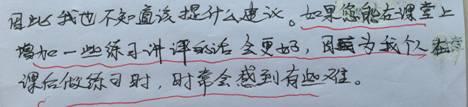 因此我也不知道该提什么建议。如果您能在课堂上
增加一些练习讲评的话会更好，因为我个人在
课后做练习时，时常会感到有些难。